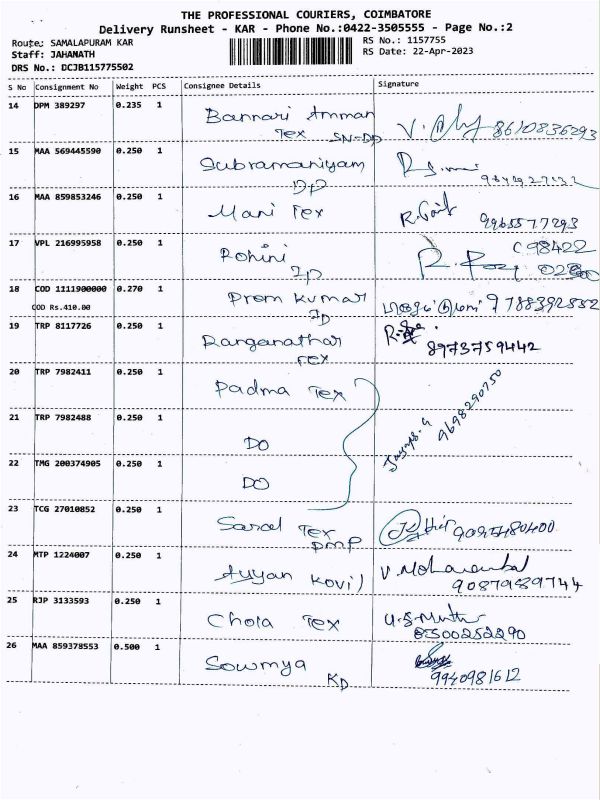 THE PROFESSIONAL COURIERS, COIMBATORE
Delivery Runsheet - KAR - Phone No.:0422-3505555 - Page No.:2
Route: SAMALAPURAM KAR
RS No.: 1157755
Staff: JAHANATH
RS Date: 22-Apr-2023
DRS No.: DCJB115775502
S No Consignment No Weight PCS Consignee Details Signature
14 DPM 389297 0.235 1 Bannari Amman
Tex SN-DP V. 8610836293
15 MAA 569445590 0.250 1 Subramaniyam
DP
16 MAA 859853246 0.250 1 Mani Tex 9965577293
17 VPL 216995958 0.250 1 Rohini C98422
JP
18 COD 1111900000 0.270 1 Prem Kumar 9788392552
COD Rs.410.00 JD
19 TRP 8117726 0.250 1 Ranganathar
Tex 8973759442
20 TRP 7982411 0.250 1 Padma Tex
9698290750
21 TRP 7982488 0.250 1 DO
22 TMG 200374905 0.250 1 DO
23 TCG 27010852 0.250 1 Saral Tex
PMP 9095480400
24 MTP 1224007 0.250 1 Ayyan Kovil V. Mohanambal
9087989744
25 RJP 3133593 0.250 1 Chola Tex U.S. Muthu
8300252290
26 MAA 859378553 0.500 1 Sowmya
KD 9940981612